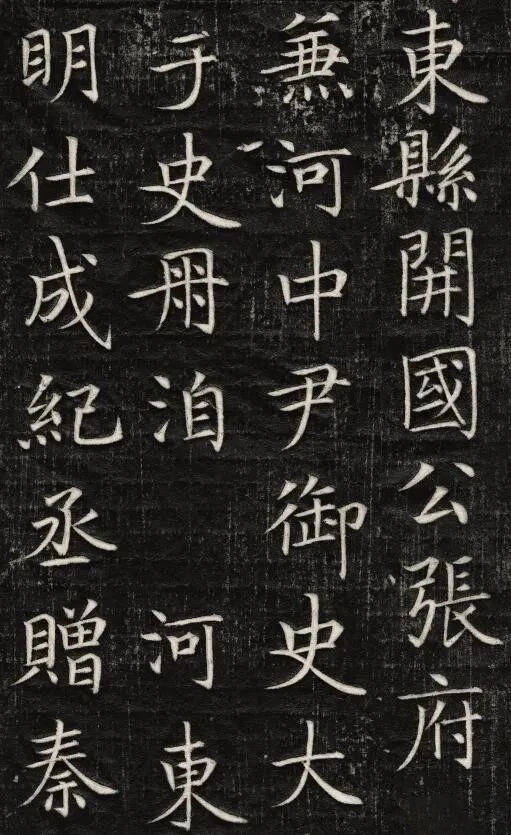 東縣開國公張府
兼河中尹御史大
于史册洎 河東
明仕成紀丞贈秦